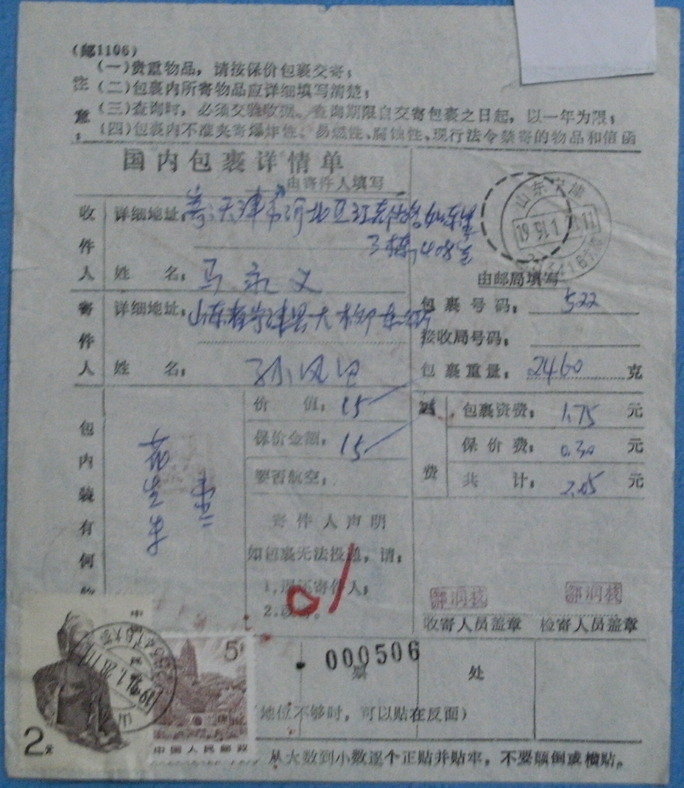 (邮1106)
(一)贵重物品，请按保价包裹交寄；
注 (二)包裹内所寄物品应详细填写清楚；
意： (三)查询时，必须交验收据。查询期限自交寄包裹之日起，以一年为限；
(四)包裹内不准夹寄爆炸性、易燃性、腐蚀性、现行法令禁寄的物品和信函
国内包裹详情单
由寄件人填写
收件人
详细地址：寄天津市河北区
3栋408室
姓名：马永义
寄件人
详细地址：山东省宁津县大柳
姓名：孙
山东 宁津
由邮局填写
包裹号码：522
接收局号码：
包裹重量：2460 克
包裹资费：1.75 元
保价费：0.30 元
费 共计：2.05 元
包内装有何物
花生米
价值：15
保价金额：15
要否航空：
寄件人声明
如包裹无法投递，请：
1.退还寄件人；
2.改
收寄人员盖章
检寄人员盖章
000506
票 处
(地位不够时，可以贴在反面)
从大数到小数逐个正贴并贴牢，不要颠倒或横贴。
2元
5
中国人民邮政